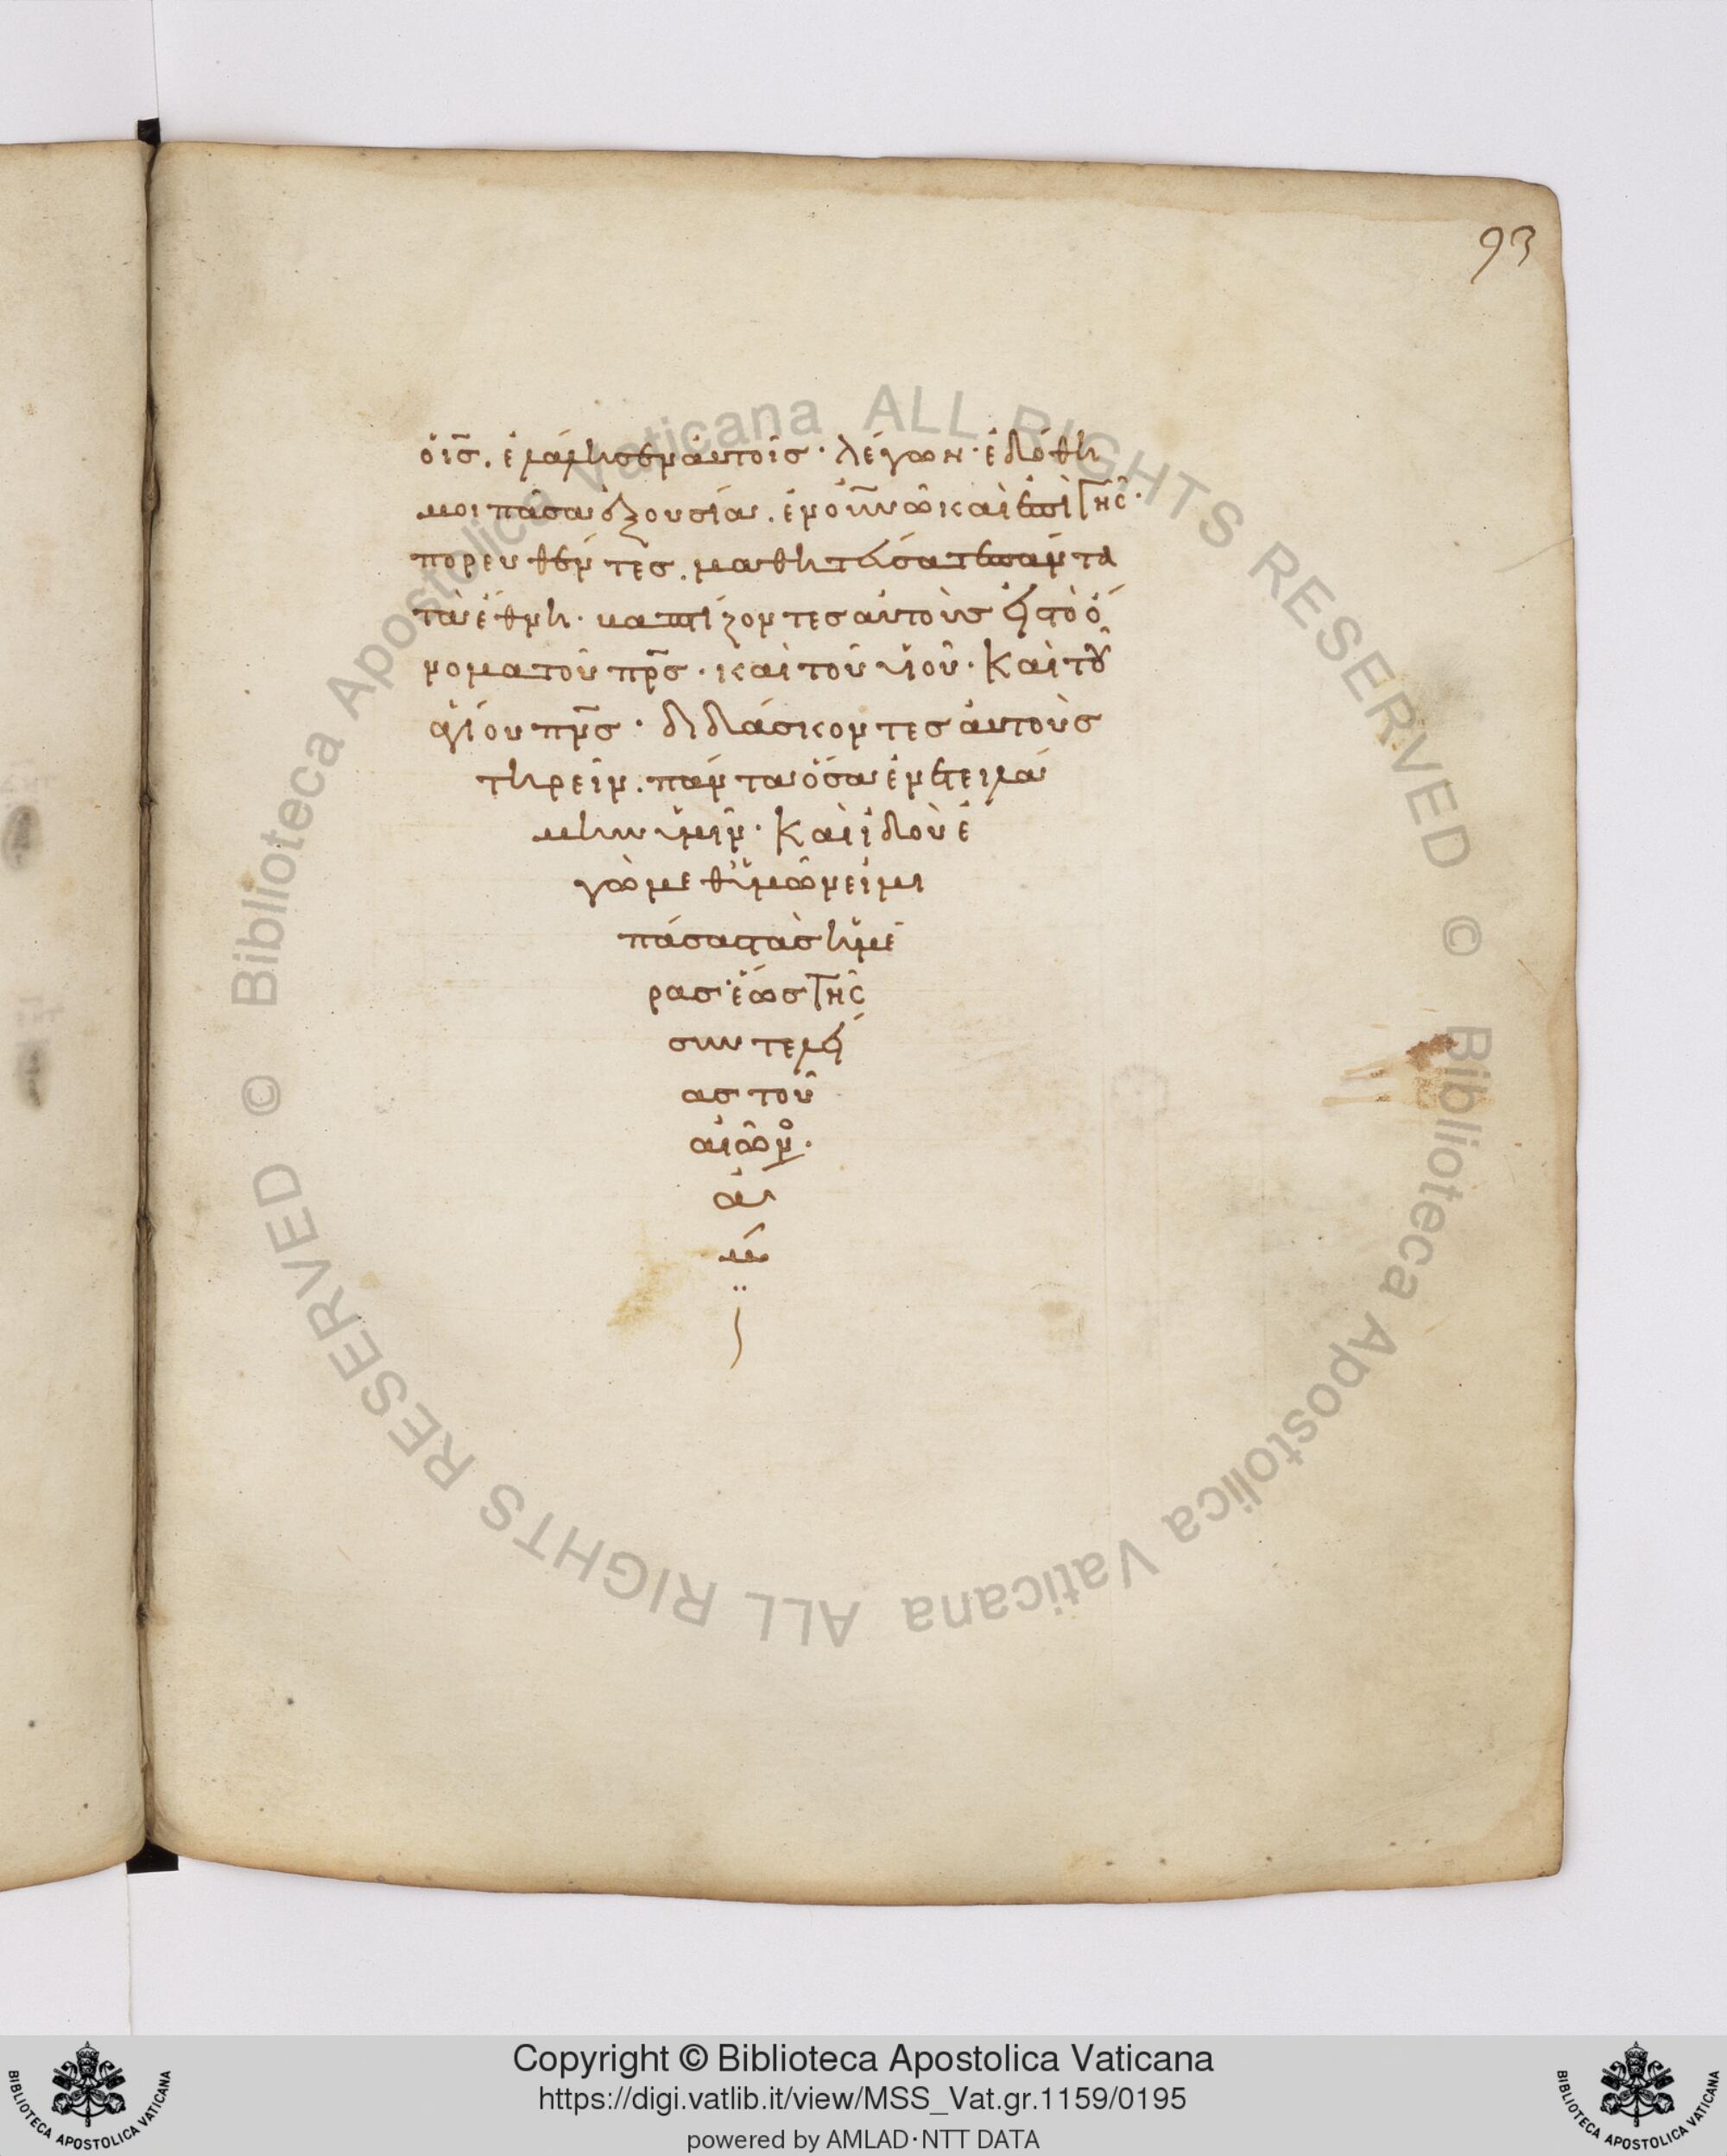 93
ὁ ις̅. ἐλάλησεν αὐτοῖς· λέγων· ἐδόθη
μοι πᾶσα ἐξουσία. ἐν οὐν̅ῶ καὶ ἐπὶ γῆς·
πορευθέντες. μαθητεύσατε πάντα
τὰ ἔθνη· βαπτίζοντες αὐτοὺς εἰς τὸ ὄ
νομα τοῦ πρ̅ς· καὶ τοῦ υἱοῦ· Καὶ τοῦ
ἁγίου πν̅ς· διδάσκοντες αὐτοὺς
τηρεῖν. πάντα ὅσα ἐνετειλά
μην ὑμῖν· Καὶ ἰδοὺ ἐ
γὼ μεθ ὑμῶν εἰμι
πάσας τὰς ἡμέ
ρας· ἕως τῆς
συντελεί
ας τοῦ
αἰῶνο.
ἀ
μή
Copyright © Biblioteca Apostolica Vaticana
https://digi.vatlib.it/view/MSS_Vat.gr.1159/0195
powered by AMLAD·NTT DATA
BIBLIOTECA APOSTOLICA VATICANA
BIBLIOTECA APOSTOLICA VATICANA
© Biblioteca Apostolica Vaticana ALL RIGHTS RESERVED
© Biblioteca Apostolica Vaticana ALL RIGHTS RESERVED